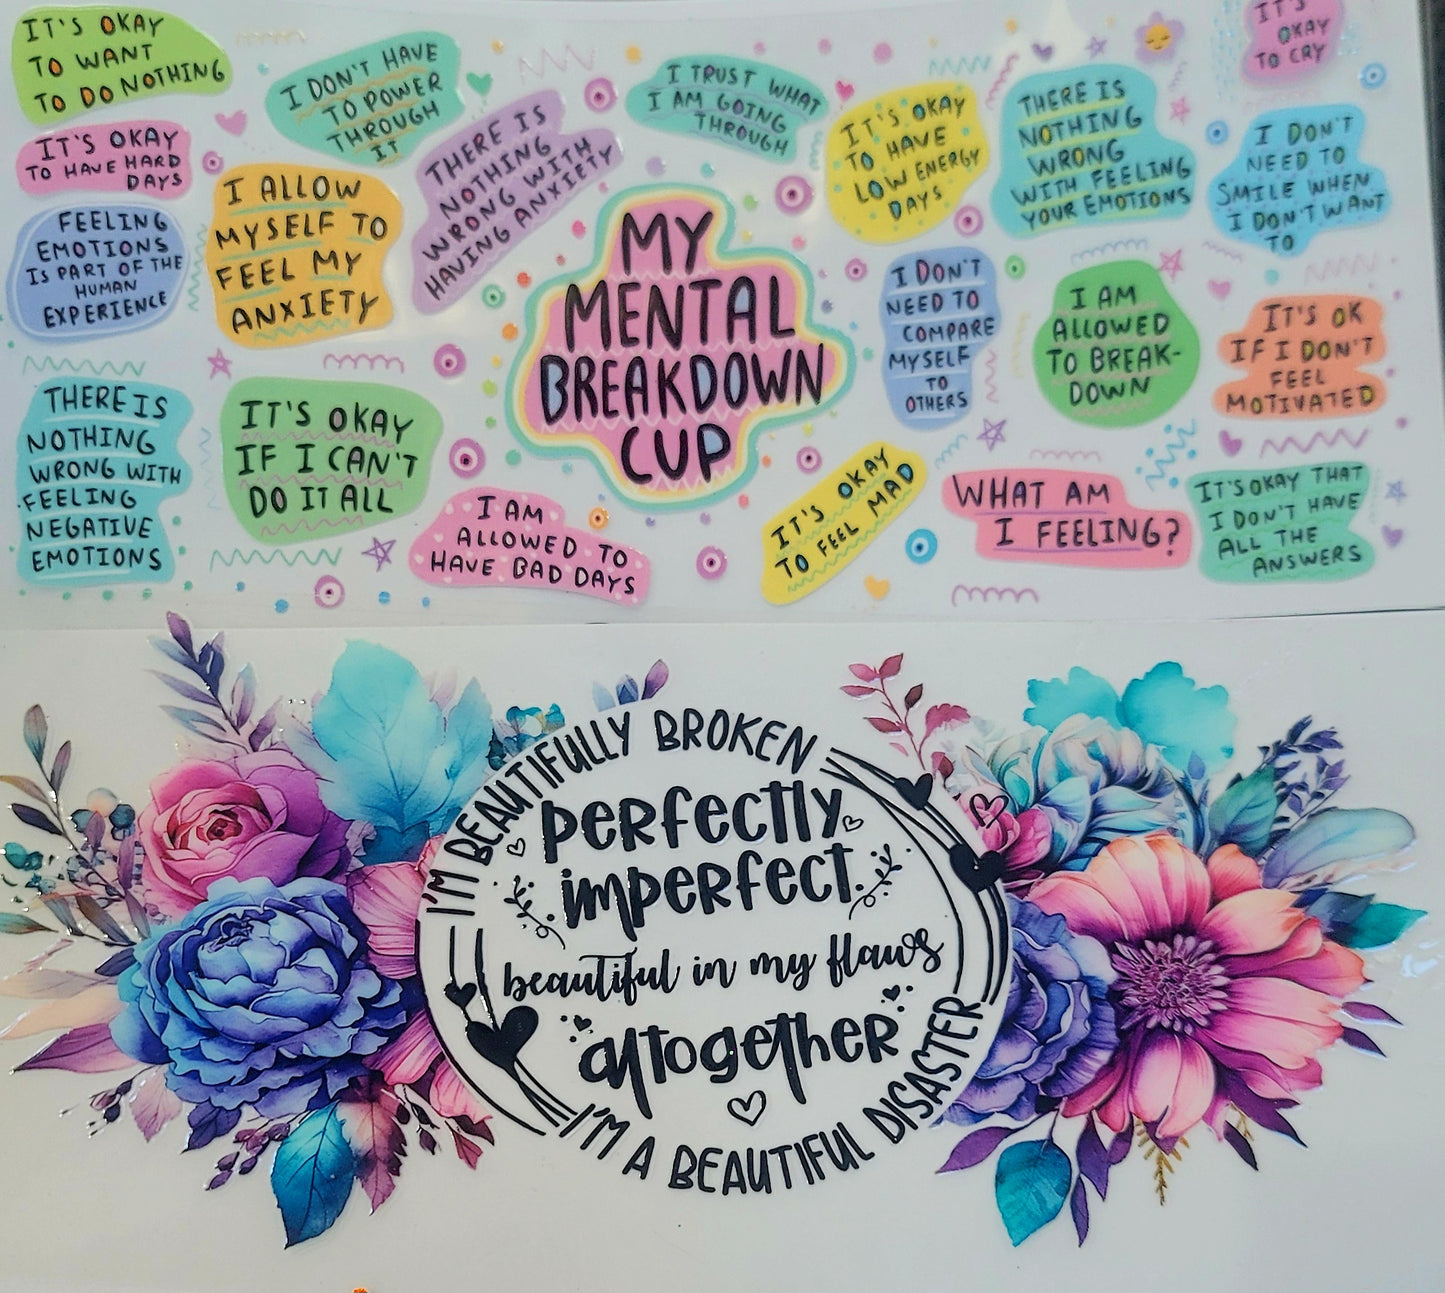 IT'S OKAY
TO WANT
TO DO NOTHING
I DON'T HAVE
TO POWER
THROUGH
IT
I TRUST WHAT
I AM GOING
THROUGH
IT'S OKAY
TO HAVE
LOW ENERGY
DAYS
THERE IS
NOTHING
WRONG
WITH FEELING
YOUR EMOTIONS
IT'S
OKAY
TO CRY
IT'S OKAY
TO HAVE HARD
DAYS
I ALLOW
MYSELF TO
FEEL MY
ANXIETY
THERE IS
NOTHING
WRONG WITH
HAVING ANXIETY
I DON'T
NEED TO
SMILE WHEN
I DON'T WANT
TO
FEELING
EMOTIONS
IS PART OF THE
HUMAN
EXPERIENCE
MY
MENTAL
BREAKDOWN
CUP
I DON'T
NEED TO
COMPARE
MYSELF
TO
OTHERS
I AM
ALLOWED
TO BREAK-
DOWN
IT'S OK
IF I DON'T
FEEL
MOTIVATED
THERE IS
NOTHING
WRONG WITH
FEELING
NEGATIVE
EMOTIONS
IT'S OKAY
IF I CAN'T
DO IT ALL
I AM
ALLOWED TO
HAVE BAD DAYS
IT'S OKAY
TO FEEL MAD
WHAT AM
I FEELING?
IT'S OKAY THAT
I DON'T HAVE
ALL THE
ANSWERS
I'M BEAUTIFULLY BROKEN
perfectly
imperfect
beautiful in my flaws
altogether
I'M A BEAUTIFUL DISASTER